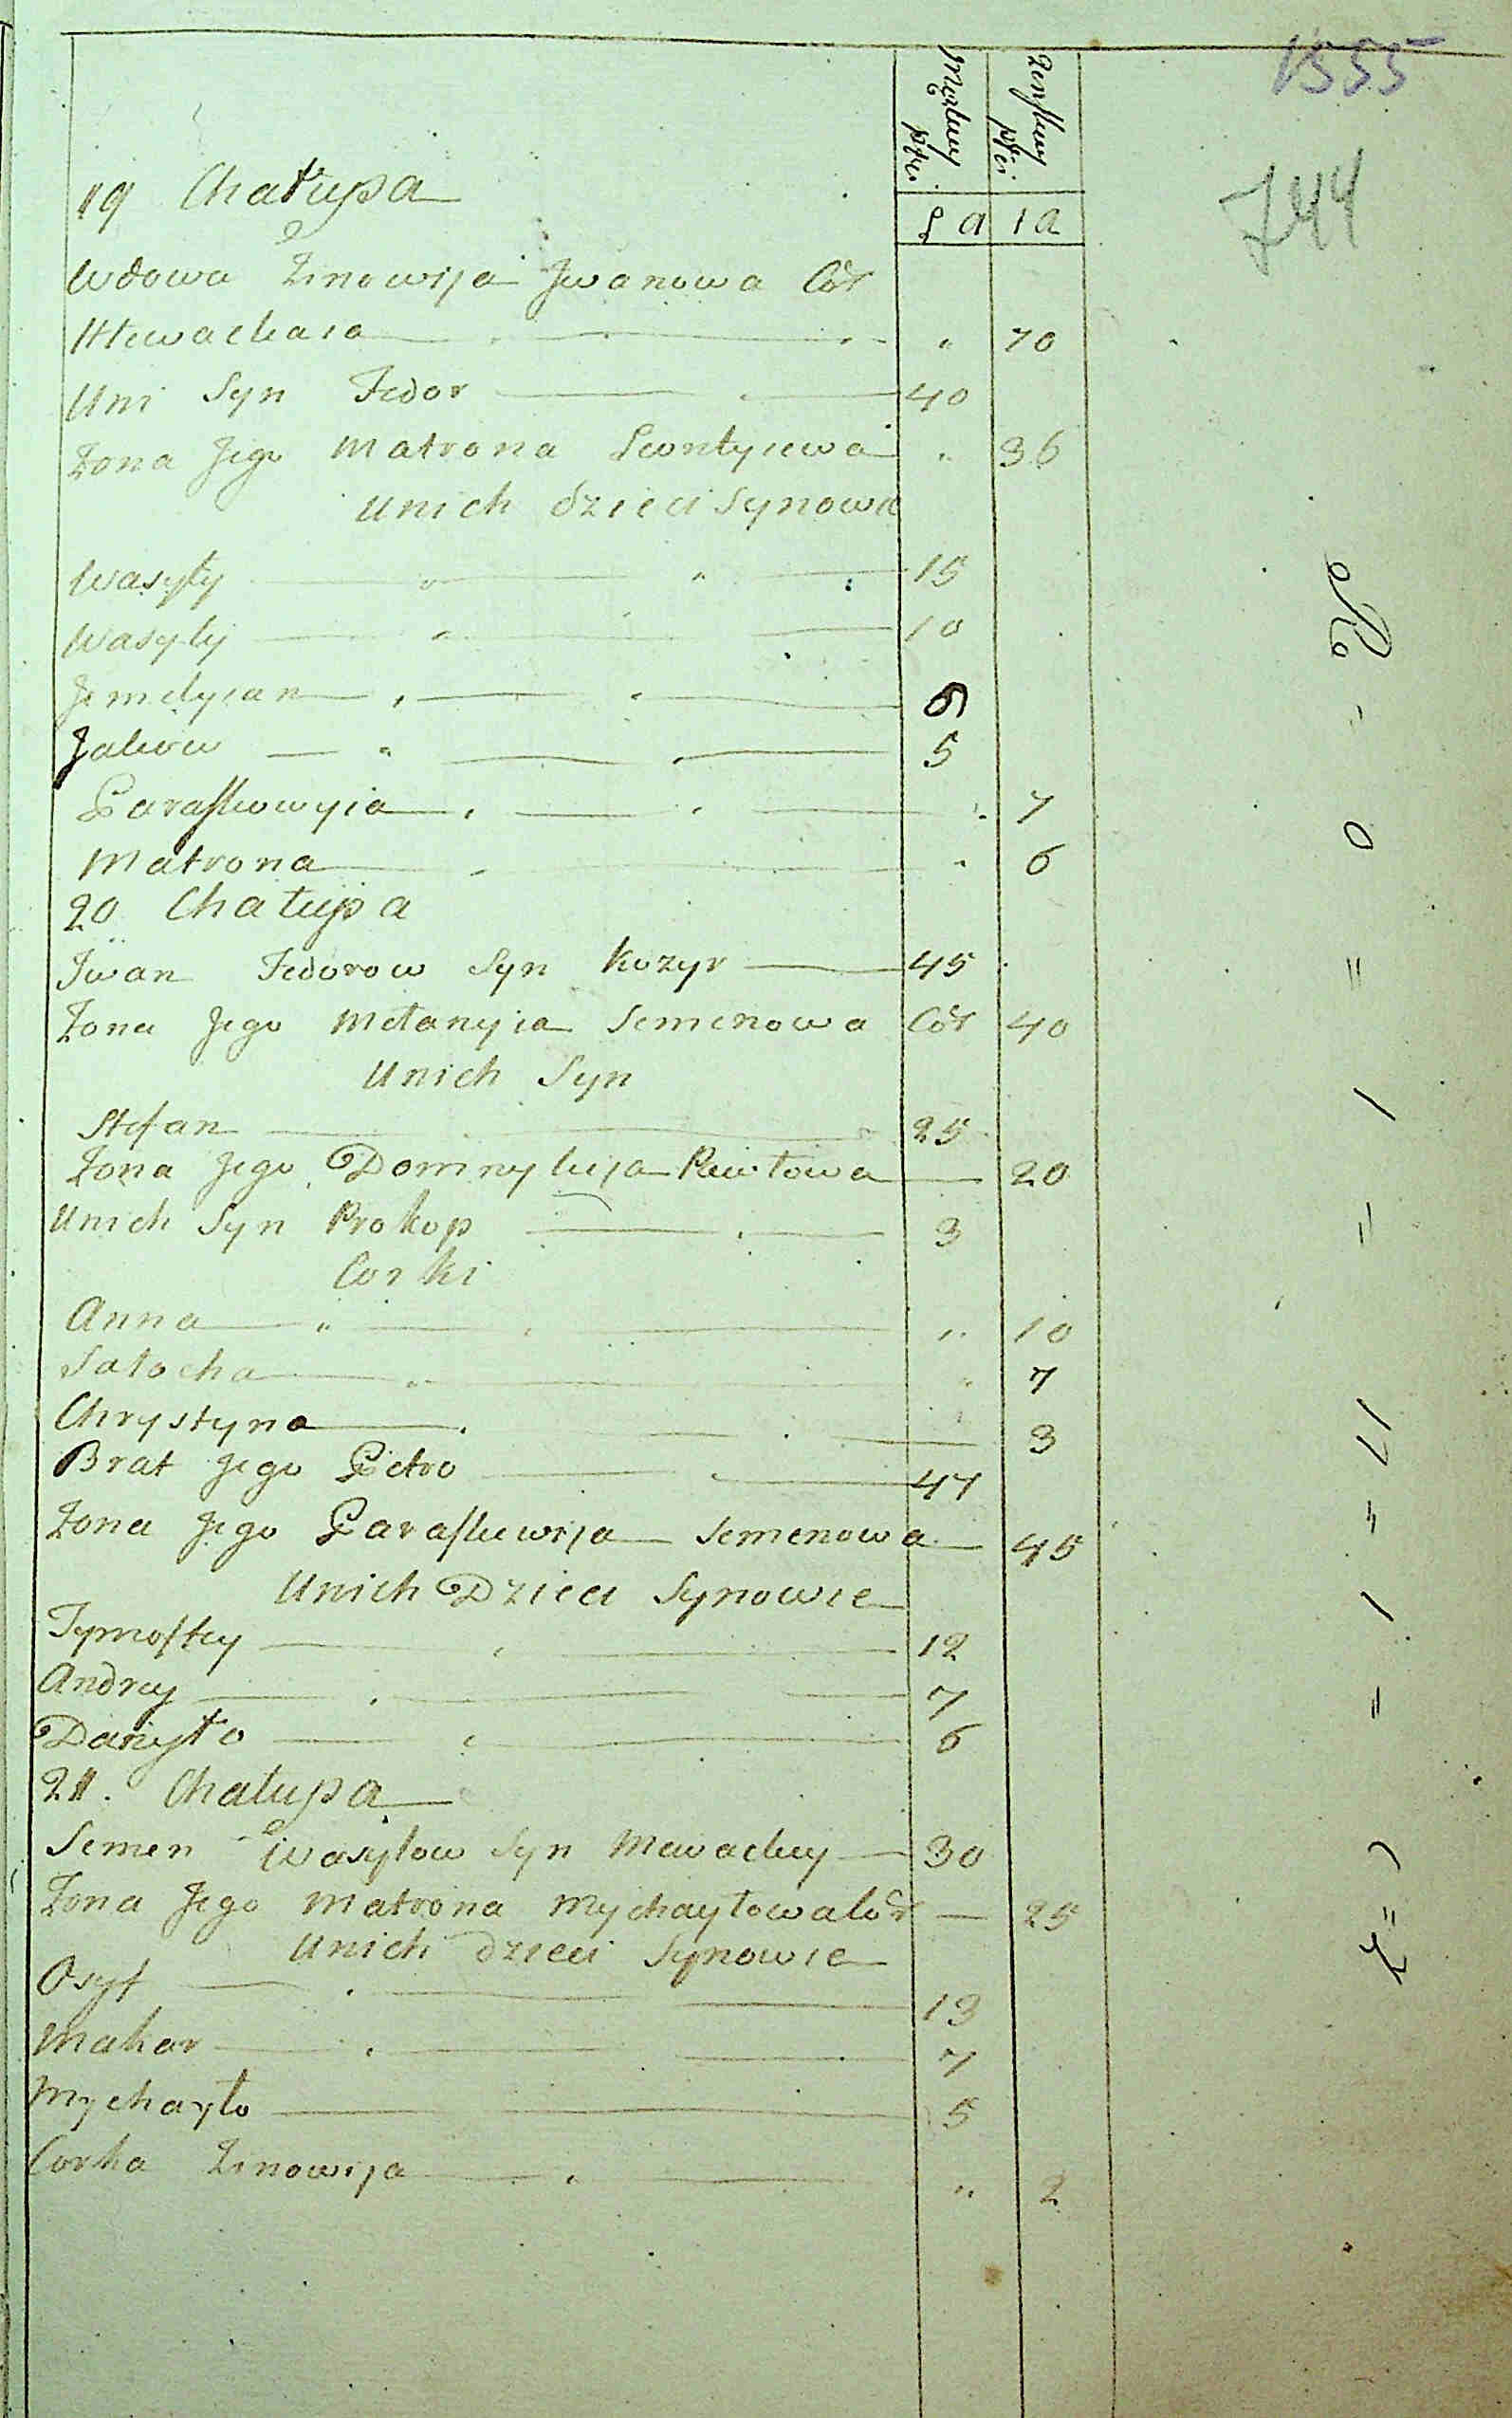 1555
744
Męzkiey płci
Żenskiey płci
L a 1 a
19 Chałupa
Wdowa Zinowija Jwanowa Cór
Mewachaia " 70
Uni Syn Fedor 40
Żona Jego Matrona Leontyiewa " 36
Unich dzieci Synowie
Wasyły 15
Wasyly 10
Jemelyian 6
Jakow 5
Paraskowyia " 7
Matrona " 6
20 Chałupa
Jwan Fedorow Syn Kozyr 45
Żona Jego Mełanyia Semenowa Cór 40
Unich Syn
Stefan 25
Żona Jego Domnykija Pawłowa 20
Unich Syn Prokop 3
Corki
Anna " 10
Sałocha " 7
Chrystyna " 3
Brat Jego Petro 47
Żona Jego Paraskewija Semenowa 45
Unich Dzieci Synowie
Tymoftey 12
Andrey 7
Danyło 6
21. Chałupa
Semen Wasylow Syn Mewachy 30
Żona Jego Matrona Mychayłowa Cór 25
Unich dzieci Synowie
Osyf 13
Makar 7
Mychayło 5
Corka Zinowija " 2